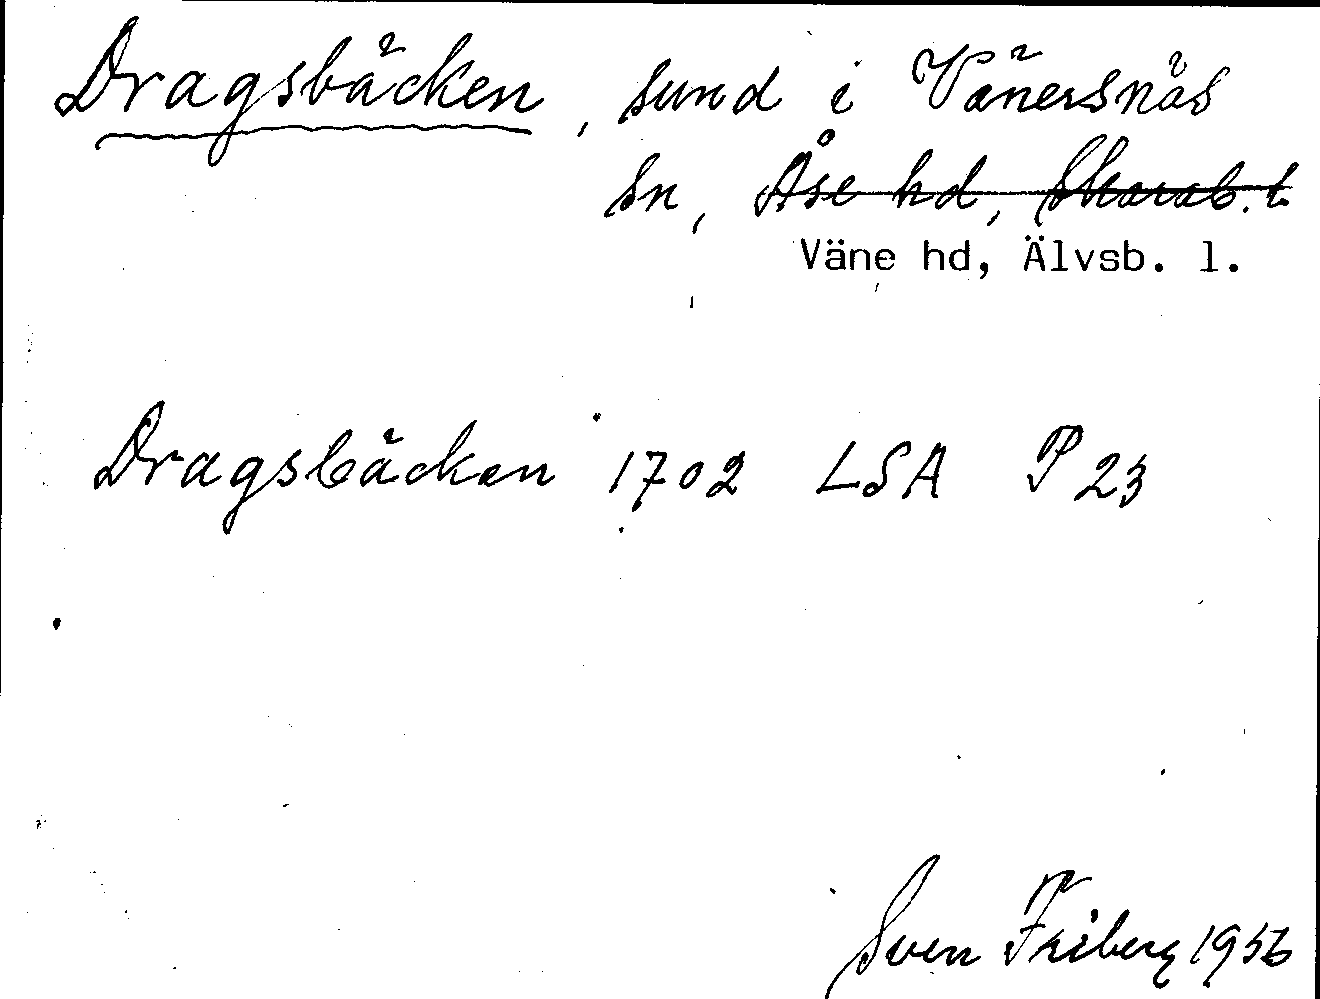 Dragsbäcken, sund i Vänersnäs
sn, Åse hd, Skarab. l
Väne hd, Älvsb. l.
Dragsbäcken 1702 LSA P 23
Sven Friberg 1956